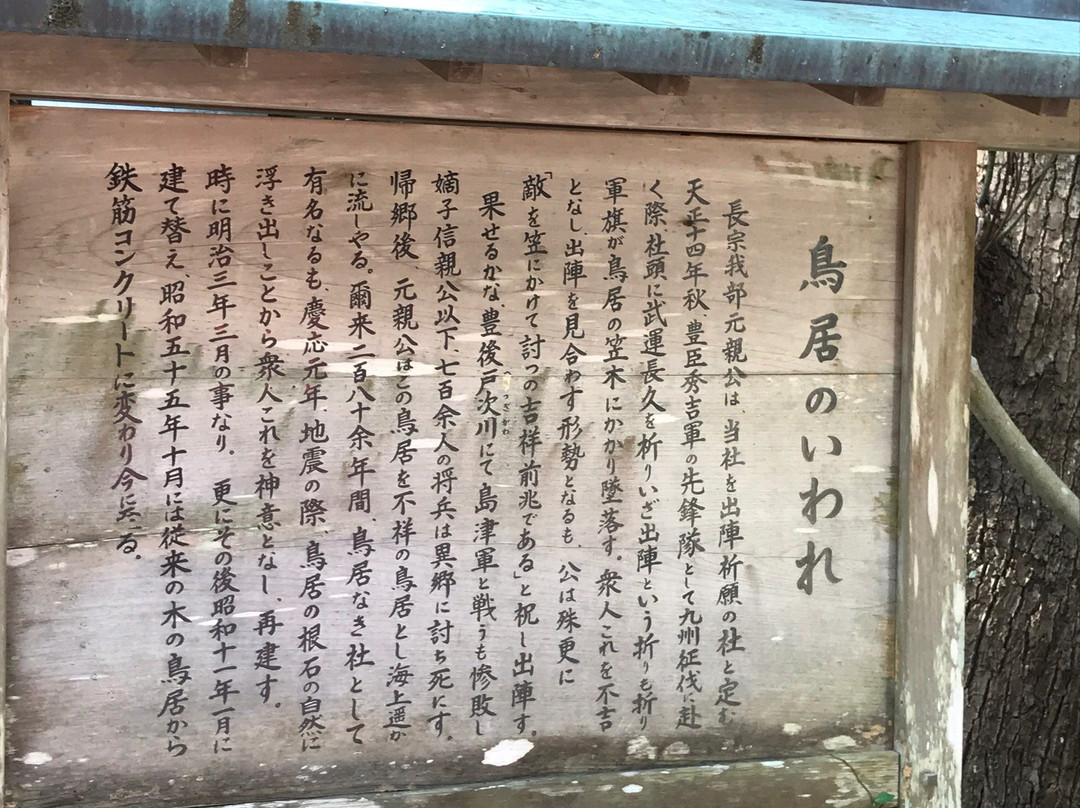 鳥居のいわれ
長宗我部元親公は、当社を出陣祈願の社と定む
天正十四年秋、豊臣秀吉軍の先鋒隊として九州征伐に赴
く際、社頭に武運長久を祈りいざ出陣という折りも折り
軍旗が鳥居の笠木にかかり墜落す。衆人これを不吉
となし、出陣を見合わす形勢となるも、公は殊更に
「敵を笠にかけて討つの吉祥前兆である」と祝し出陣す。
果せるかな、豊後戸次川にて島津軍と戦うも惨敗し
へつぎがわ
嫡子信親公以下、七百余人の将兵は異郷に討ち死にす。
帰郷後、元親公はこの鳥居を不祥の鳥居とし海上遥か
に流しやる。爾来二百八十余年間、鳥居なき社として
有名なるも、慶応元年、地震の際、鳥居の根石の自然に
浮き出しことから衆人これを神意となし、再建す。
時に明治三年三月の事なり。 更にその後昭和十一年一月に
建て替え、昭和五十五年十月には従来の木の鳥居から
鉄筋コンクリートに変わり今に至る。